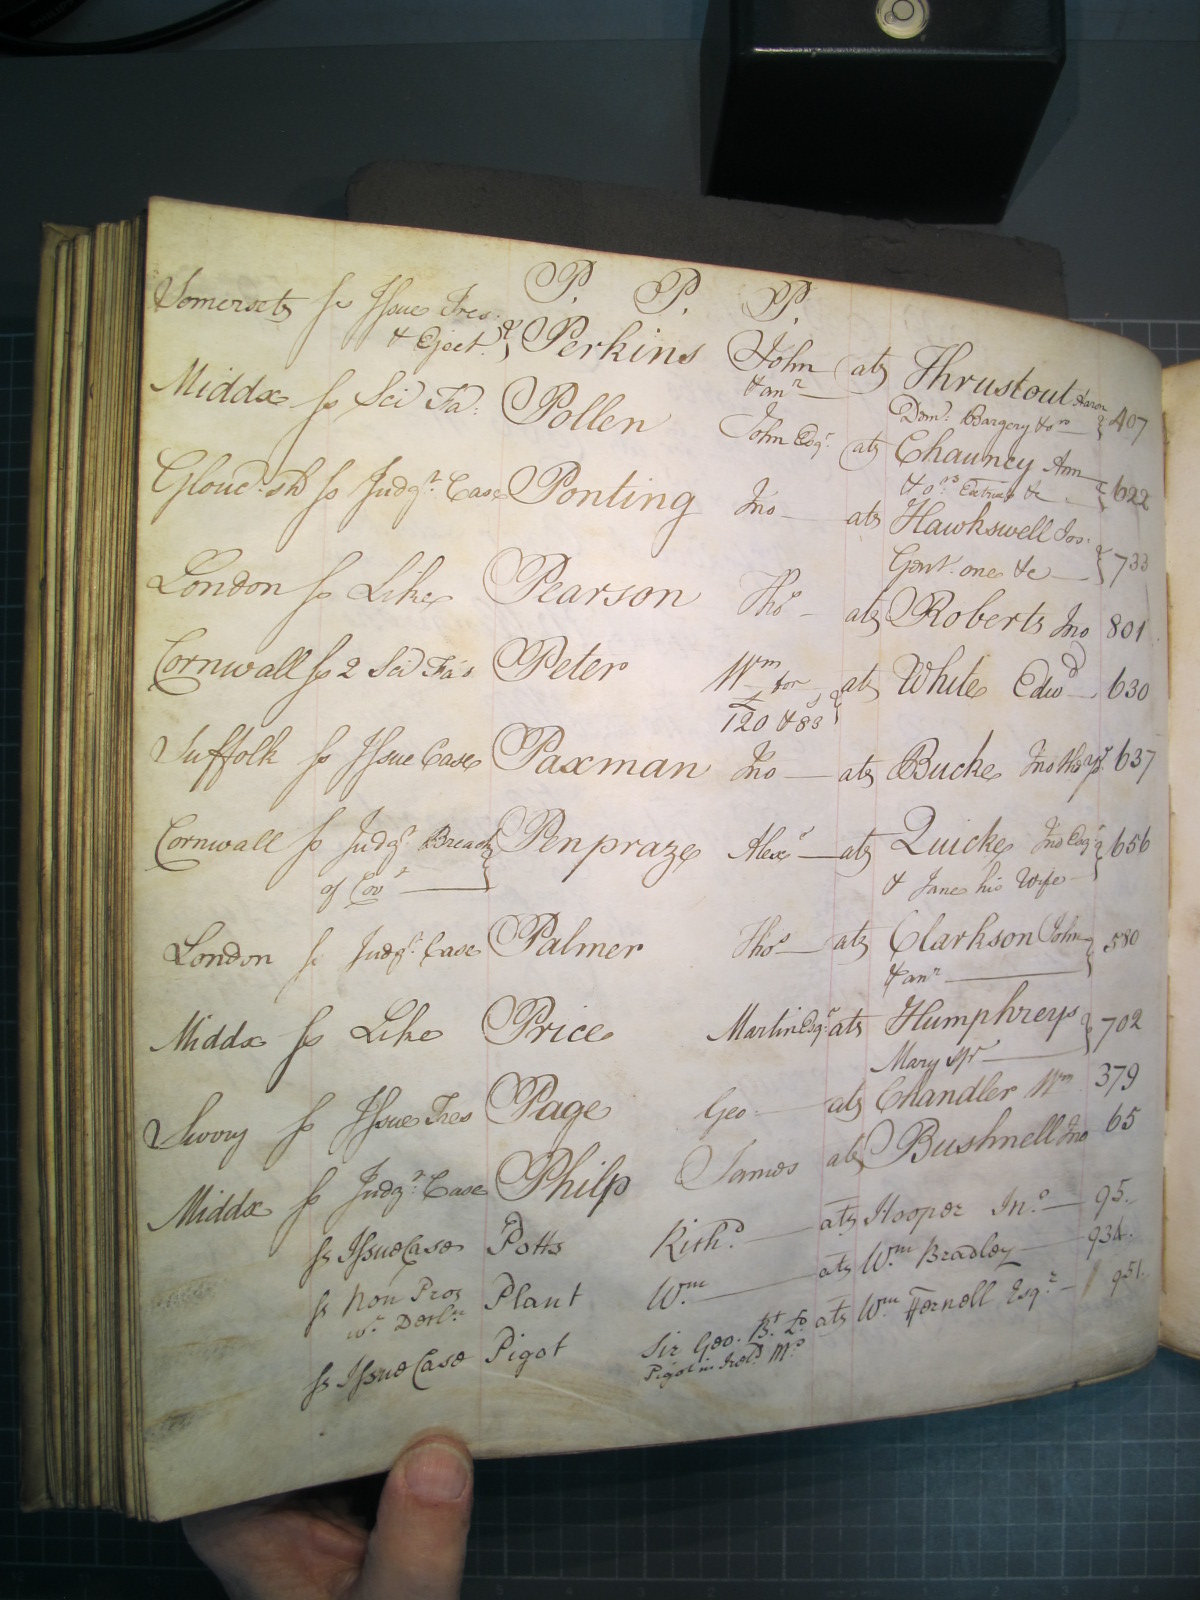 P. P. P.
Somersetss Issue Tres. & Eject. Perkins John & anr ats Thrustout Aaron Dem. Bargery & on 407
Middx ss Sci Fa. Pollen John Esqr. ats Chauncy Ann & ors Extrix &c 622
Gloucsh ss Judgt. Case Ponting Jno ats Hawkswell Jos. Gent. one &c 733
London ss Like Pearson Thos ats Roberts Jno 801
Cornwall ss 2 Sci Fa's Peter Wm for £120 & 83s ats White Edwd 630
Suffolk ss Issue Case Paxman Jno ats Bucke Jno 637
Cornwall ss Judgt. Breach of Covt Penpraze Alexr ats Quicke Jno Esqr & Jane his Wife 656
London ss Judgt. Case Palmer Thos ats Clarkson John & anr 580
Middx ss Like Price Martin Esqr ats Humphreys Mary Spr 702
Surry ss Issue Tres Page Geo ats Chandler Wm 379
Middx ss Judgt. Case Philp James ats Bushnell Jno 65
ss Issue Case Potts Richd. ats Hooper Jno. 95.
ss Non Pros Plant Wm. ats Wm. Bradley 934.
ss Issue Case Pigot Sir Geo. Bt. Ld. Pigot in Ireld. ats Wm. Hornell Esqr. 951.